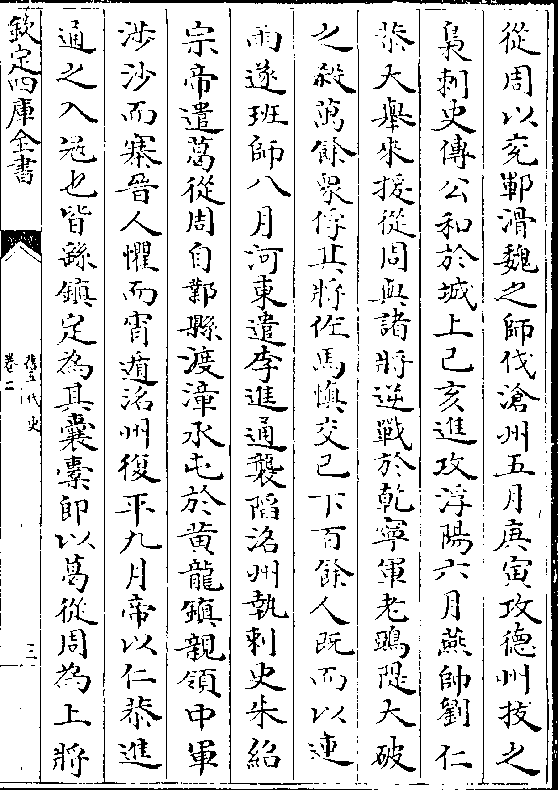 從周以兗鄆滑魏之師伐滄州五月庚寅攻德州拔之
梟刺史傅公和於城上己亥進攻浮陽六月燕帥劉仁
恭大舉來援從周與諸將逆戰於乾寧軍老鴉隄大破
之殺萬餘眾俘其將佐馬慎交已下百餘人既而以連
雨遂班師八月河東遣李進通襲陷洺州執刺史朱紹
宗帝遣葛從周自鄴縣渡漳水屯於黃龍鎮親領中軍
涉洺而寨晉人懼而宵遁洺州復平九月帝以仁恭進
通之入寇也皆繇鎮定為其囊橐即以葛從周為上將
欽定四庫全書
舊五代史
卷二
三